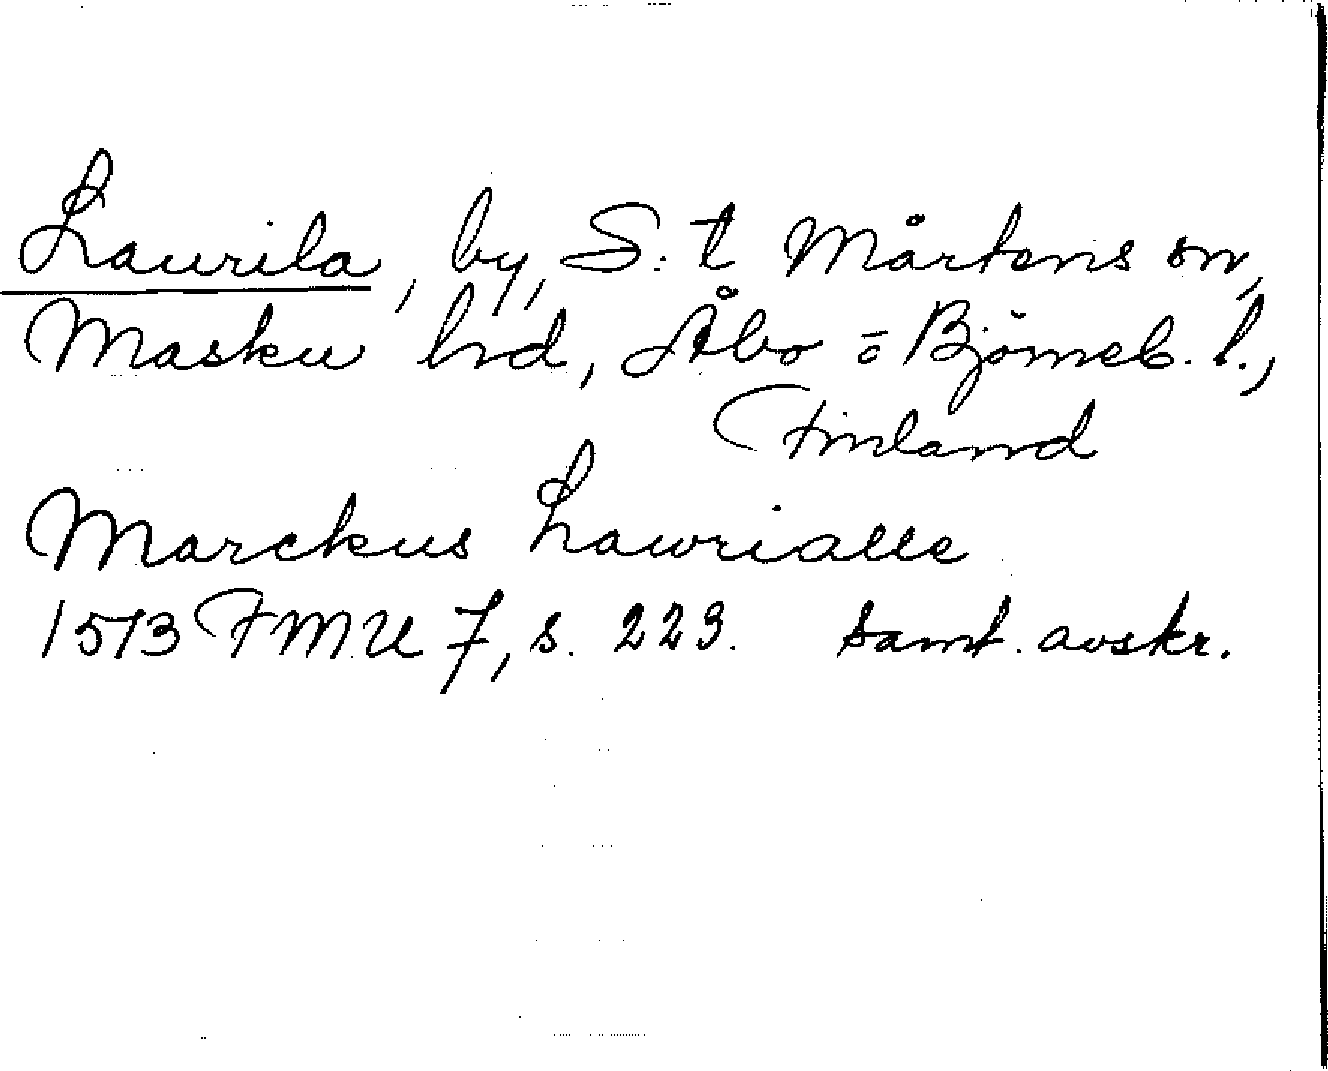 Laurila, by, S:t Mårtens sn,
Masku hd, Åbo = Björneb. l.,
Finland
Marckus Lawrialle
1513 FMU 7, s. 223. samt. avskr.